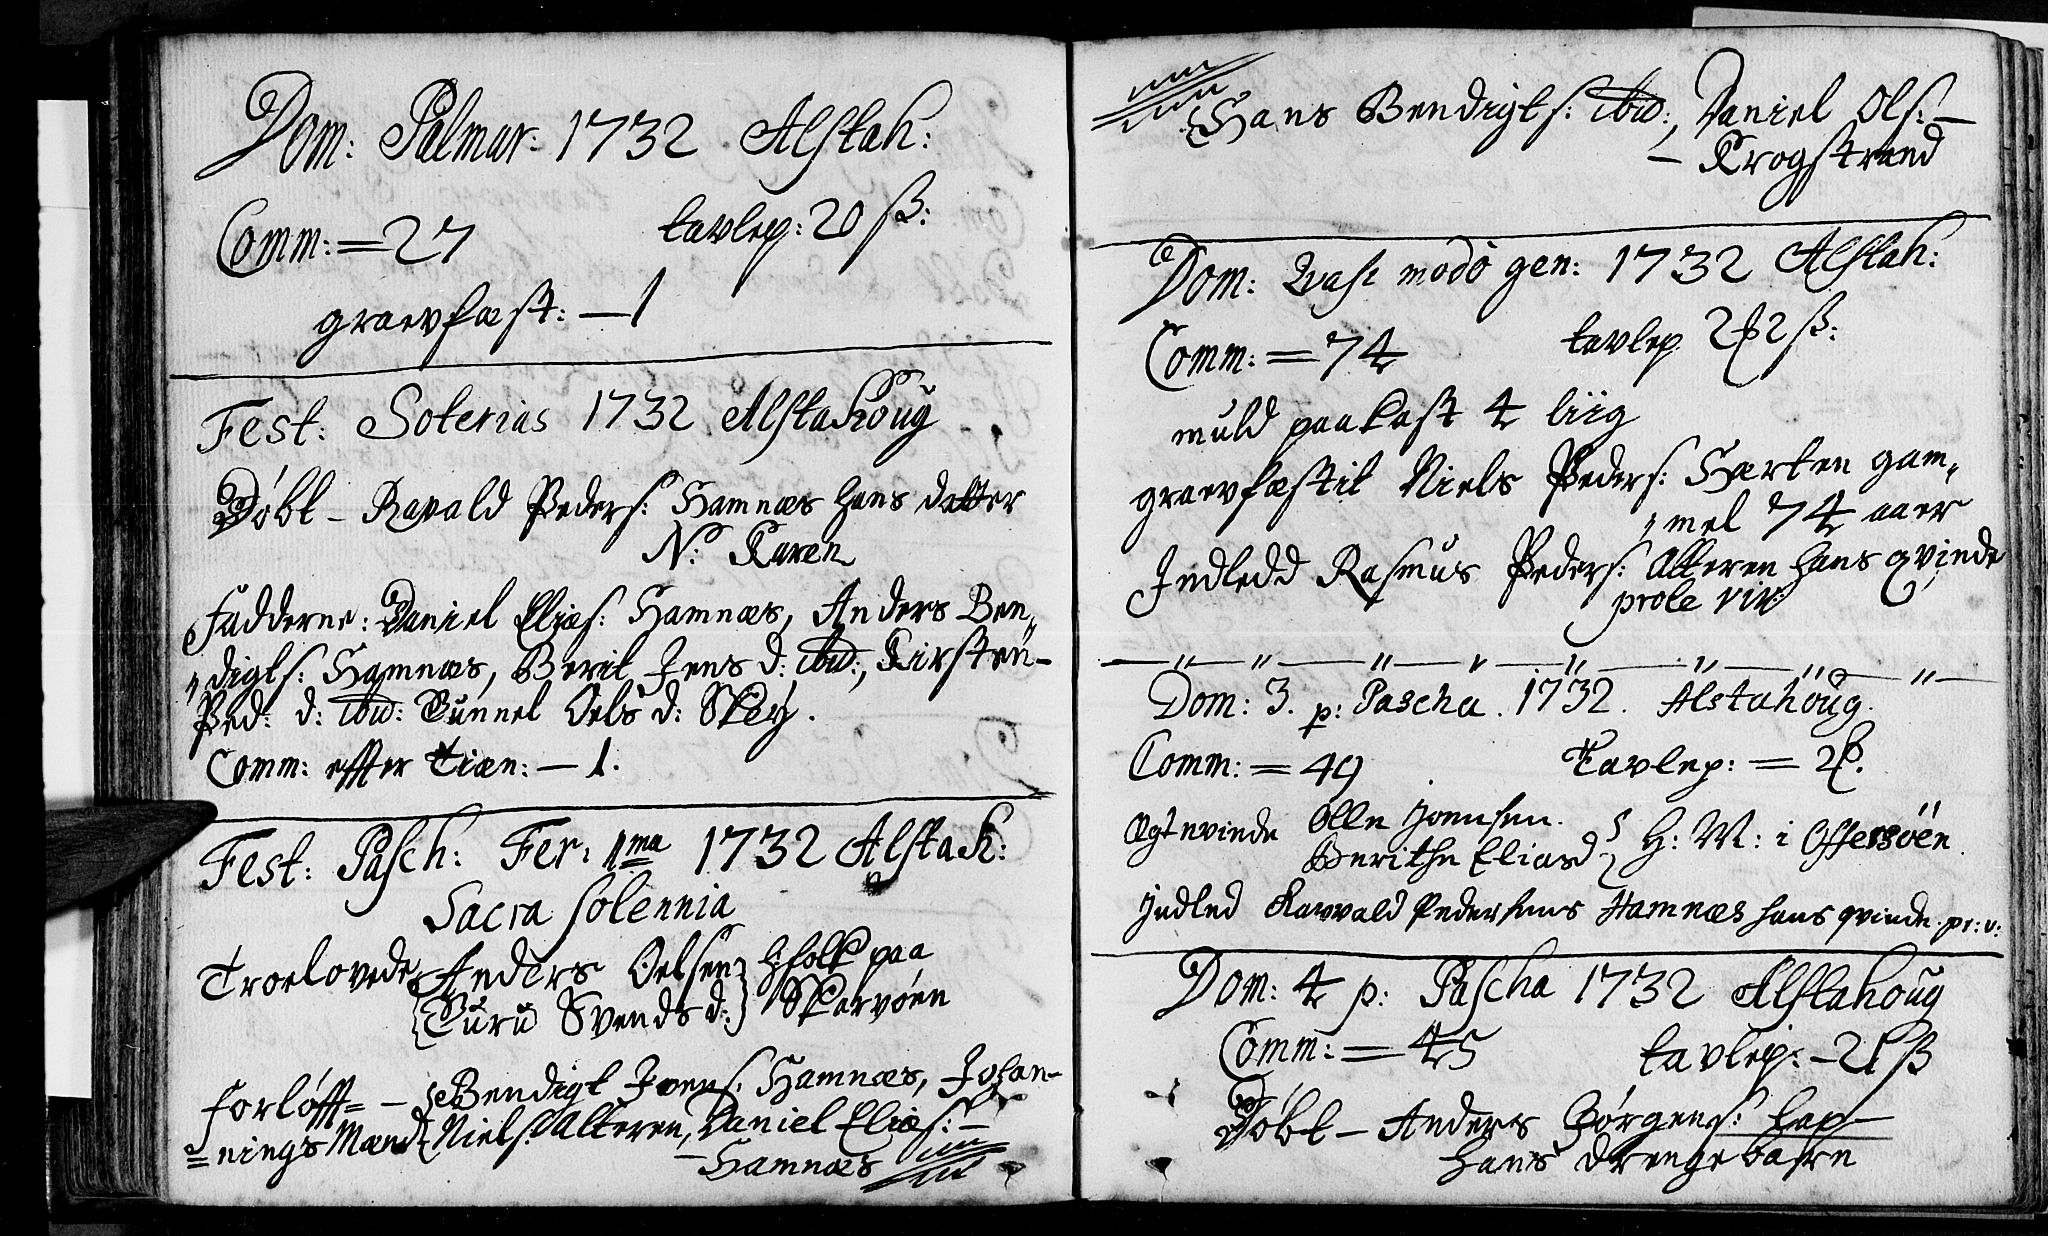 Dom: Palmar: 1732 Alstah:
Comm: = 27 tavlep: 20 ß:
graevfæst: — 1
Fest: Soterias 1732 Alstahoug
Døbt - Ravald Peders: Hamnæs hans datter
N: Karen
Fadderne: Daniel Elias: Hamnæs, Anders Ben„
„digts: Hamnæs, Berit Jens d: ibid:, Kirsten
Ped: d: ibid: Gunnel Oels d: Skey.
Comm: effter Tiæn: — 1.
Fest: Pasch: Fer: 1ma 1732 Alstah:
Sacra solennia
Troelovede Anders Oelsen hfolk paa
Guru Svends d: Skarvøen
Forløff= — Bendigt Ivers: Hamnæs, Johan-
=nings Mænd Niels: Alteren, Daniel Elias: —
— Hamnæs
Hans Bendigts: ibid:, Daniel Ols: —
— Krogstrand
Dom: Quasi modo gen: 1732 Alstah:
Comm: = 74 tavlep 2 2 ß:
muld paakast 4 liig
graevfæstit Niels Peders: Hærten gam„
„mel 74 aaer
Indledd Rasmus Peders: Alteren hans qvinde
prole viv:
Dom: 3. p: Pascha. 1732. Alstahoug.
Comm: = 49 Tavlep: = 2
Ægtevinde Olle Joensen.
Berithe Elias d H: M: i Offersøen.
Indled Ravvald Pedersens Hamnæs hans qvinde. pr: v:
Dom: 4 p: Pascha 1732 Alstahoug
Comm: = 45 tavlep: — 21 ß
Døbt — Anders Børgens: Lap —
hans drengebarn